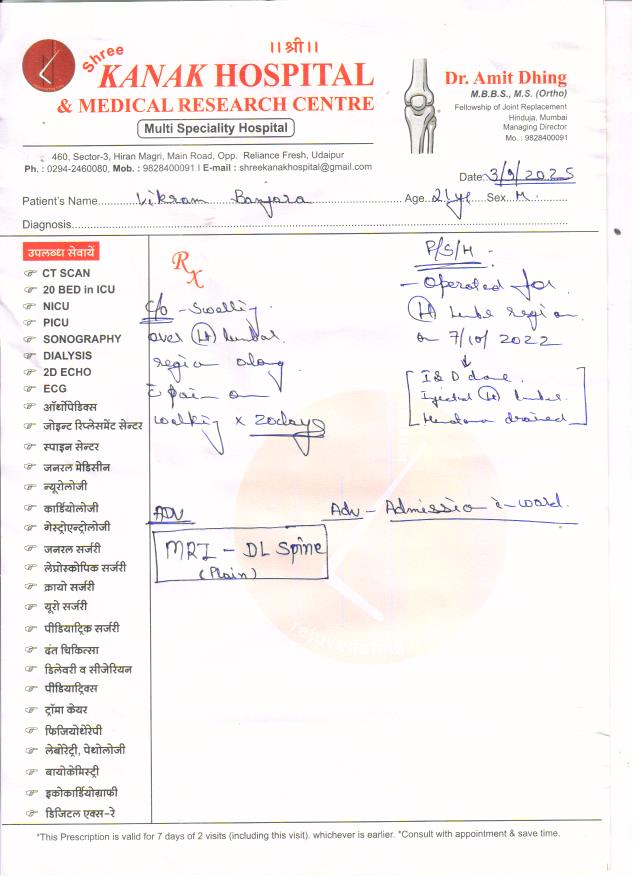 ।।श्री।।
Shree
KANAK HOSPITAL
& MEDICAL RESEARCH CENTRE
Multi Speciality Hospital
Dr. Amit Dhing
M.B.B.S., M.S. (Ortho)
Fellowship of Joint Replacement
Hinduja, Mumbai
Managing Director
Mo. : 9828400091
460, Sector-3, Hiran Magri, Main Road, Opp. Reliance Fresh, Udaipur
Ph. : 0294-2460080, Mob. : 9828400091 I E-mail : shreekanakhospital@gmail.com
Date: 3/9/2025
Patient's Name Vikram Banjara Age. 21yr Sex. M
Diagnosis
उपलब्ध सेवायें
CT SCAN
20 BED in ICU
NICU
PICU
SONOGRAPHY
DIALYSIS
2D ECHO
ECG
ऑर्थोपिडिक्स
जोइन्ट रिप्लेसमेंट सेन्टर
स्पाइन सेन्टर
जनरल मेडिसीन
न्यूरोलोजी
कार्डियोलोजी
गेस्ट्रोएन्ट्रोलोजी
जनरल सर्जरी
लेप्रोस्कोपिक सर्जरी
क्रायो सर्जरी
यूरो सर्जरी
पीडियाट्रिक सर्जरी
दंत चिकित्सा
डिलेवरी व सीजेरियन
पीडियाट्रिक्स
ट्रॉमा केयर
फिजियोथेरेपी
लेबोरेट्री, पेथोलोजी
बायोकेमिस्ट्री
इकोकार्डियोग्राफी
डिजिटल एक्स-रे
Rx
c/o - Swelling
over (Lt) lumbar
region along
c pain on
walking x 20days
P/S/H -
- Operated for
(Lt) lumbar region
on 7/10/2022
I & D done
(Lt) lumbar
drained
ADV
MRI - DL Spine
(Plain)
Adv - Admission i-ward
rejuvenating
*This Prescription is valid for 7 days of 2 visits (including this visit). whichever is earlier. *Consult with appointment & save time.